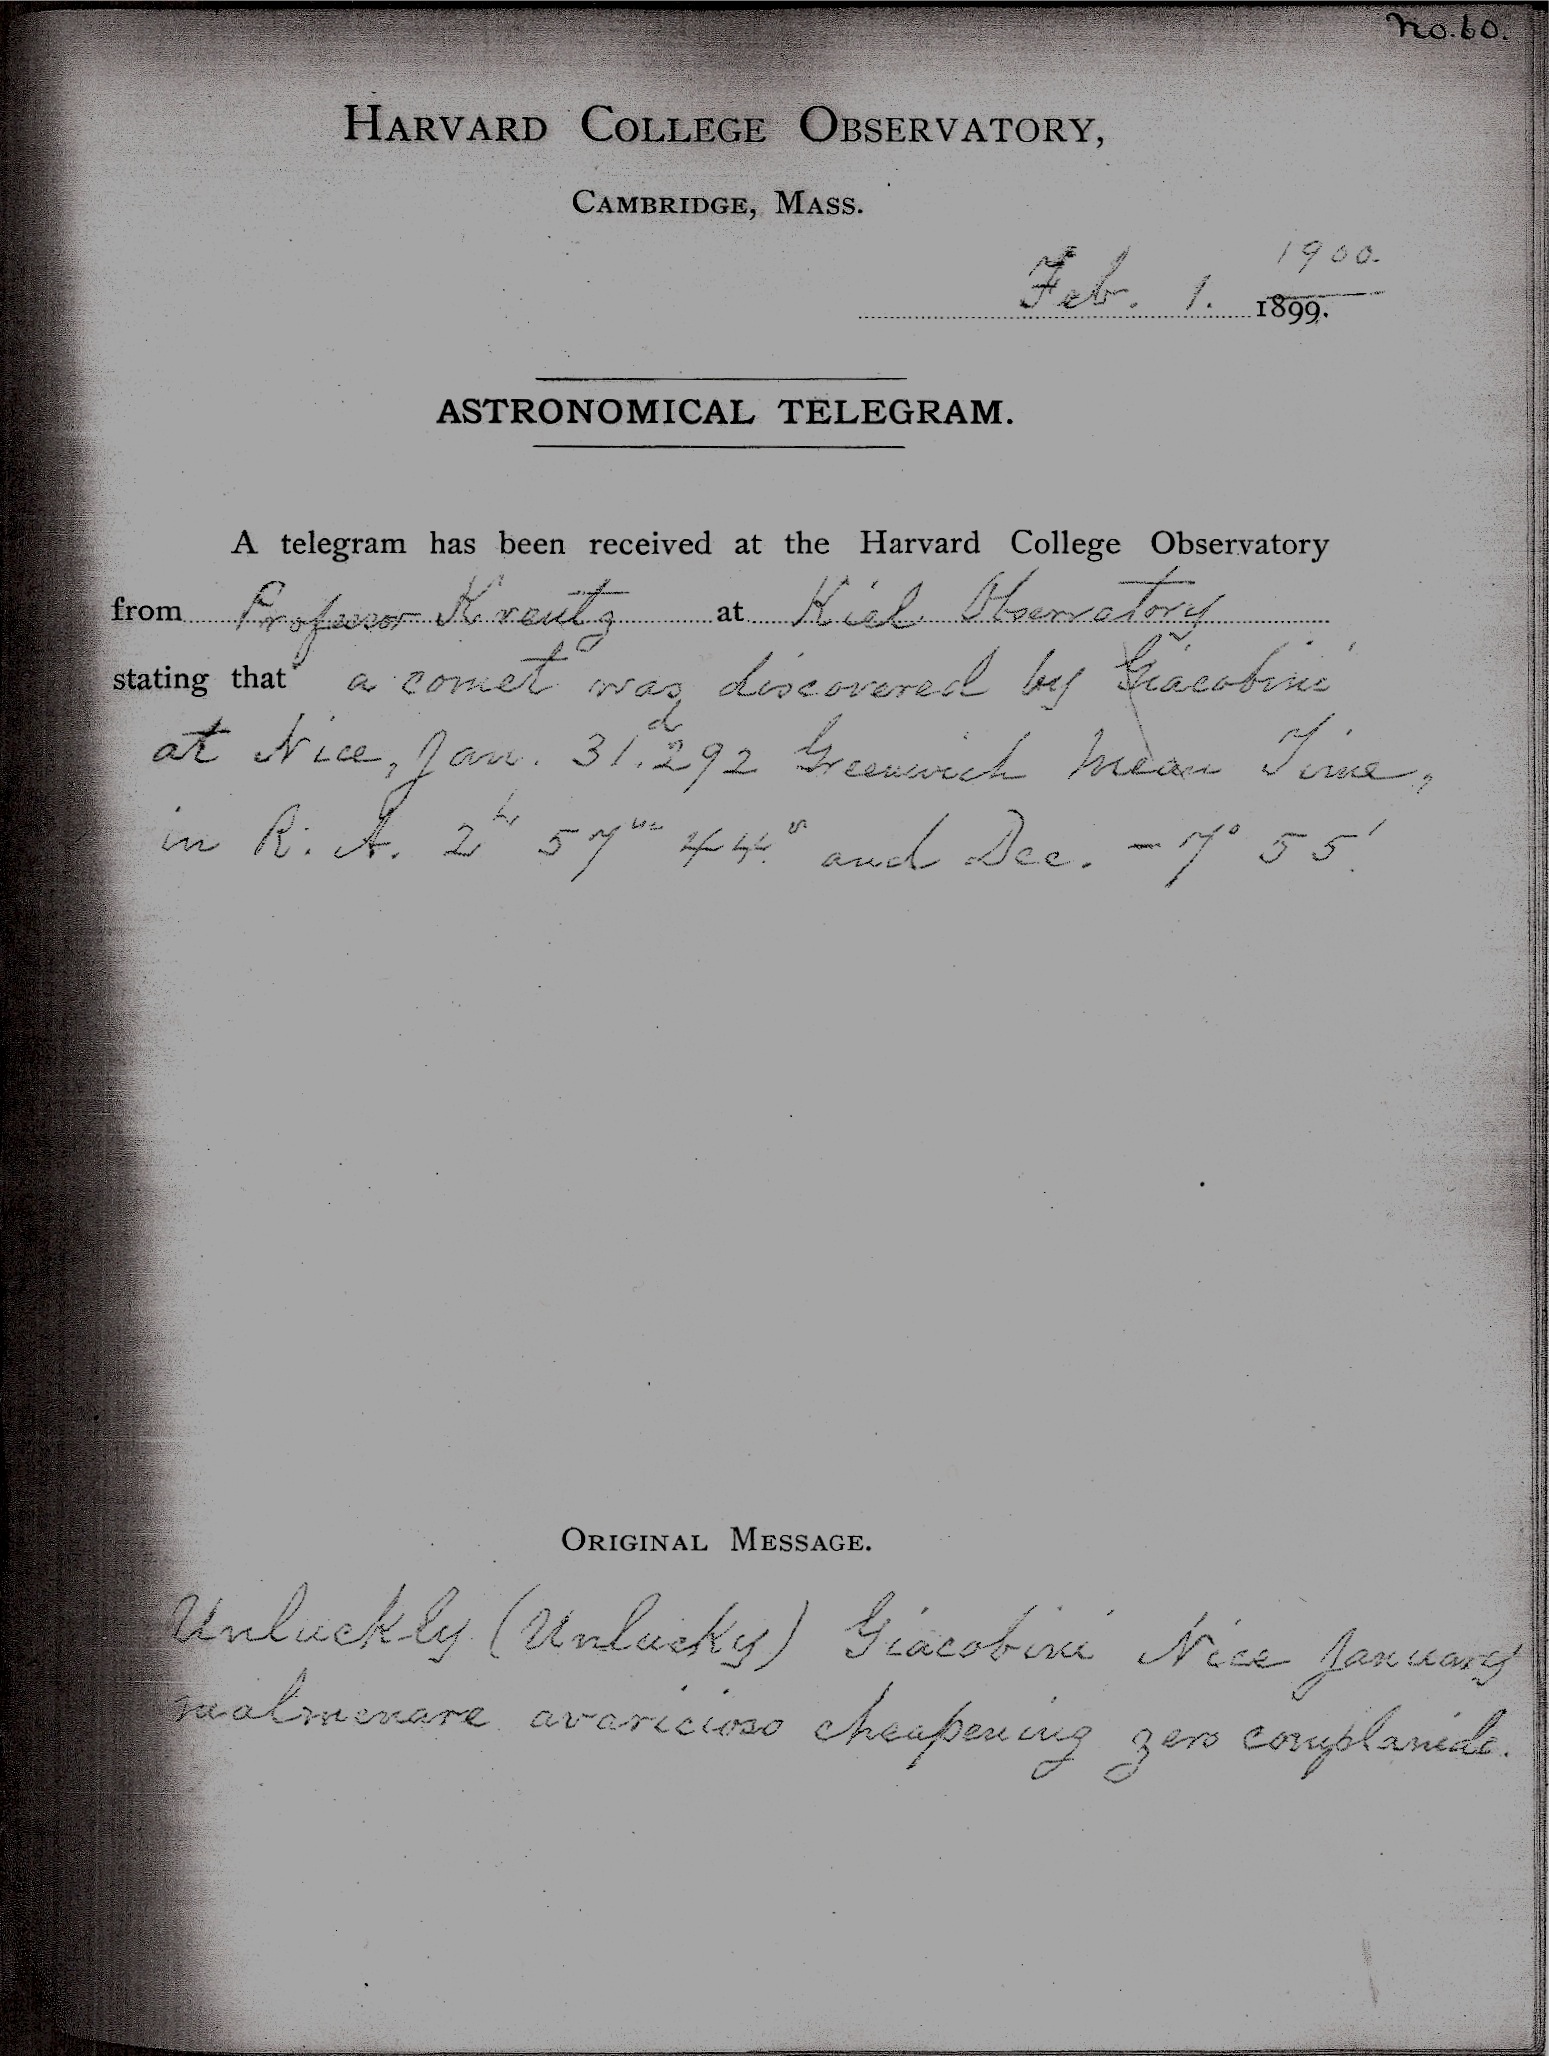 No. 60.
HARVARD COLLEGE OBSERVATORY,
CAMBRIDGE, MASS.
1900.
Feb. 1. 1899.
ASTRONOMICAL TELEGRAM.
A telegram has been received at the Harvard College Observatory
from Professor Kreutz at Kiel Observatory
stating that a comet was discovered by Giacobini
at Nice, Jan. 31.ᵈ292 Greenwich Mean Time,
in R. A. 2ʰ 57ᵐ 44.ˢ and Dec. -7° 55.'
ORIGINAL MESSAGE.
Unluckly (Unlucky) Giacobini Nice January
malmenare avaricioso cheapening zero complanide.